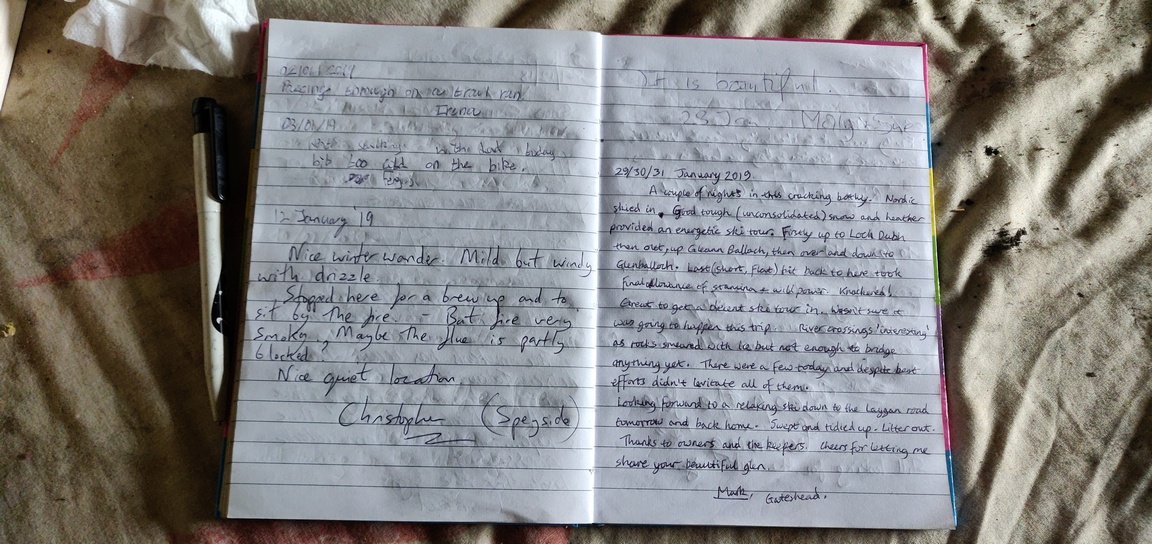 02/01/2019
Passing through on a trail run
Irena
03/01/19
with the dog today
bit too cold on the bike.
12 January '19
Nice winter wander. Mild but windy
with drizzle
Stopped here for a brew up and to
sit by the fire. - But fire very
smoky, Maybe the flue is partly
blocked.
Nice quiet location
Christopher (Speyside)
It is beautiful.
23 Jan
29/30/31 January 2019.
A couple of nights in this cracking bothy. Nordic
skied in. Good tough (unconsolidated) snow and heather
provided an energetic ski tour. Firstly up to Loch Dubh
then over, up Gleann Ballach, then over and down to
Glenballoch. Last (short, flat) bit back to here took
final allowance of stamina + will power. Knackered!
Great to get a decent ski tour in, wasn't sure it
was going to happen this trip. River crossings 'interesting'
as rocks smeared with ice but not enough to bridge
anything yet. There were a few today and despite best
efforts didn't levitate all of them.
Looking forward to a relaxing ski down to the Laggan road
tomorrow and back home. Swept and tidied up. Litter out.
Thanks to owners and the keepers. Cheers for letting me
share your beautiful glen
Mark, Gateshead.